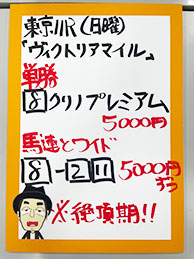 東京11R(日曜)
「ヴィクトリアマイル」
単勝
8 クリノプレミアム
5000円
馬連とワイド
8-12 11 5000円
ずつ
※絶頂期!!